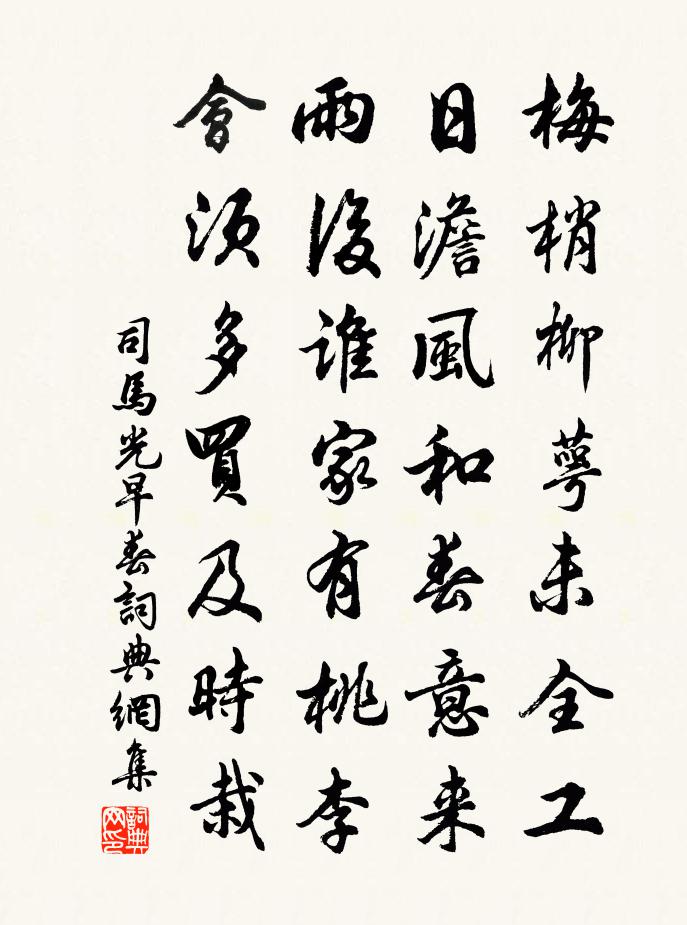 梅梢柳萼未全工
日澹風和春意来
雨後誰家有桃李
會須多買及時栽
司馬光早春詞典網集
詞典网印